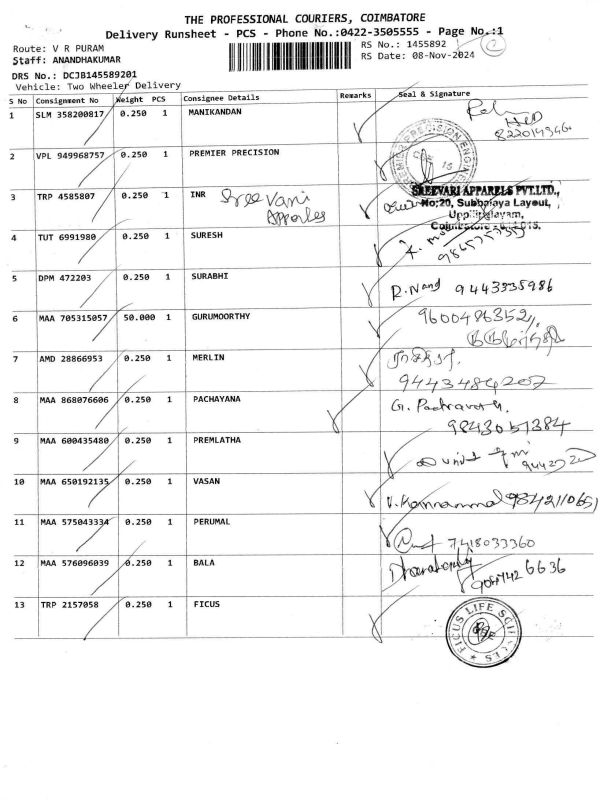 THE PROFESSIONAL COURIERS, COIMBATORE
Delivery Runsheet - PCS - Phone No.:0422-3505555 - Page No.:1
Route: V R PURAM
RS No.: 1455892
2
Staff: ANANDHAKUMAR
RS Date: 08-Nov-2024
DRS No.: DCJB145589201
Vehicle: Two Wheeler Delivery
S No Consignment No Weight PCS Consignee Details Remarks Seal & Signature
1 SLM 358200817 0.250 1 MANIKANDAN
2 VPL 949968757 0.250 1 PREMIER PRECISION
3 TRP 4585807 0.250 1 INR Sree Vani
SREEVARI APPARELS PVT.LTD.,
No:20, Subbalaya Layout,
Uppilipalayam,
4 TUT 6991980 0.250 1 SURESH
5 DPM 472203 0.250 1 SURABHI R. Nand 9443335986
6 MAA 705315057 50.000 1 GURUMOORTHY 9600486352
7 AMD 28866953 0.250 1 MERLIN
9443484202
8 MAA 868076606 0.250 1 PACHAYANA
9843051384
9 MAA 600435480 0.250 1 PREMLATHA
10 MAA 650192135 0.250 1 VASAN V. Kannammal 9842110651
11 MAA 575043334 0.250 1 PERUMAL 7418033360
12 MAA 576096039 0.250 1 BALA
13 TRP 2157058 0.250 1 FICUS
FICUS LIFE SCIENCES